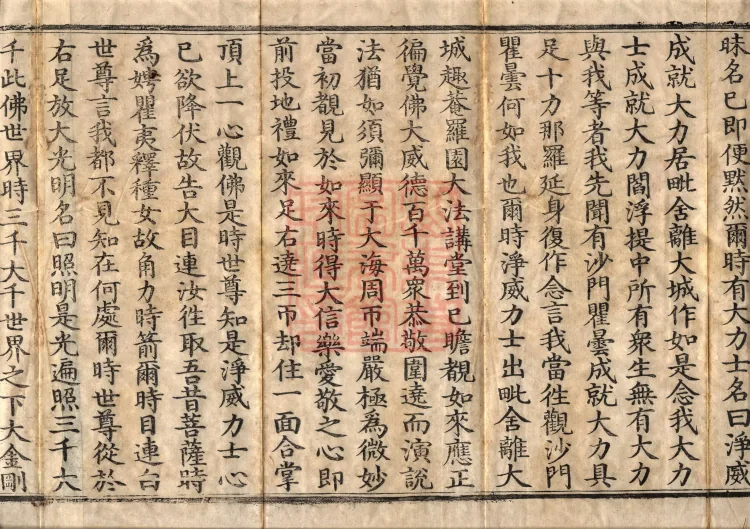 昧名已即便黙然爾時有大力士名曰淨威
成就大力居毗舍離大城作如是念我大力
士成就大力閻浮提中所有衆生無有大力
與我等者我先聞有沙門瞿曇成就大力具
足十力那羅延身復作念言我當徃觀沙門
瞿曇何如我也爾時淨威力士出毗舍離大
城趣菴羅園大法講堂到已瞻覩如來應正
徧覺佛大威德百千萬衆恭敬圍遶而演說
法猶如須彌顯于大海周帀端嚴極爲微妙
當初覩見於如來時得大信樂愛敬之心即
前投地禮如來足右遶三帀却住一面合掌
頂上一心觀佛是時世尊知是淨威力士心
已欲降伏故告大目連汝徃取吾昔菩薩時
爲娉瞿夷釋種女故角力時箭爾時目連白
世尊言我都不見知在何處爾時世尊從於
右足放大光明名曰照明是光遍照三千大
千此佛世界時三千大千世界之下大金剛